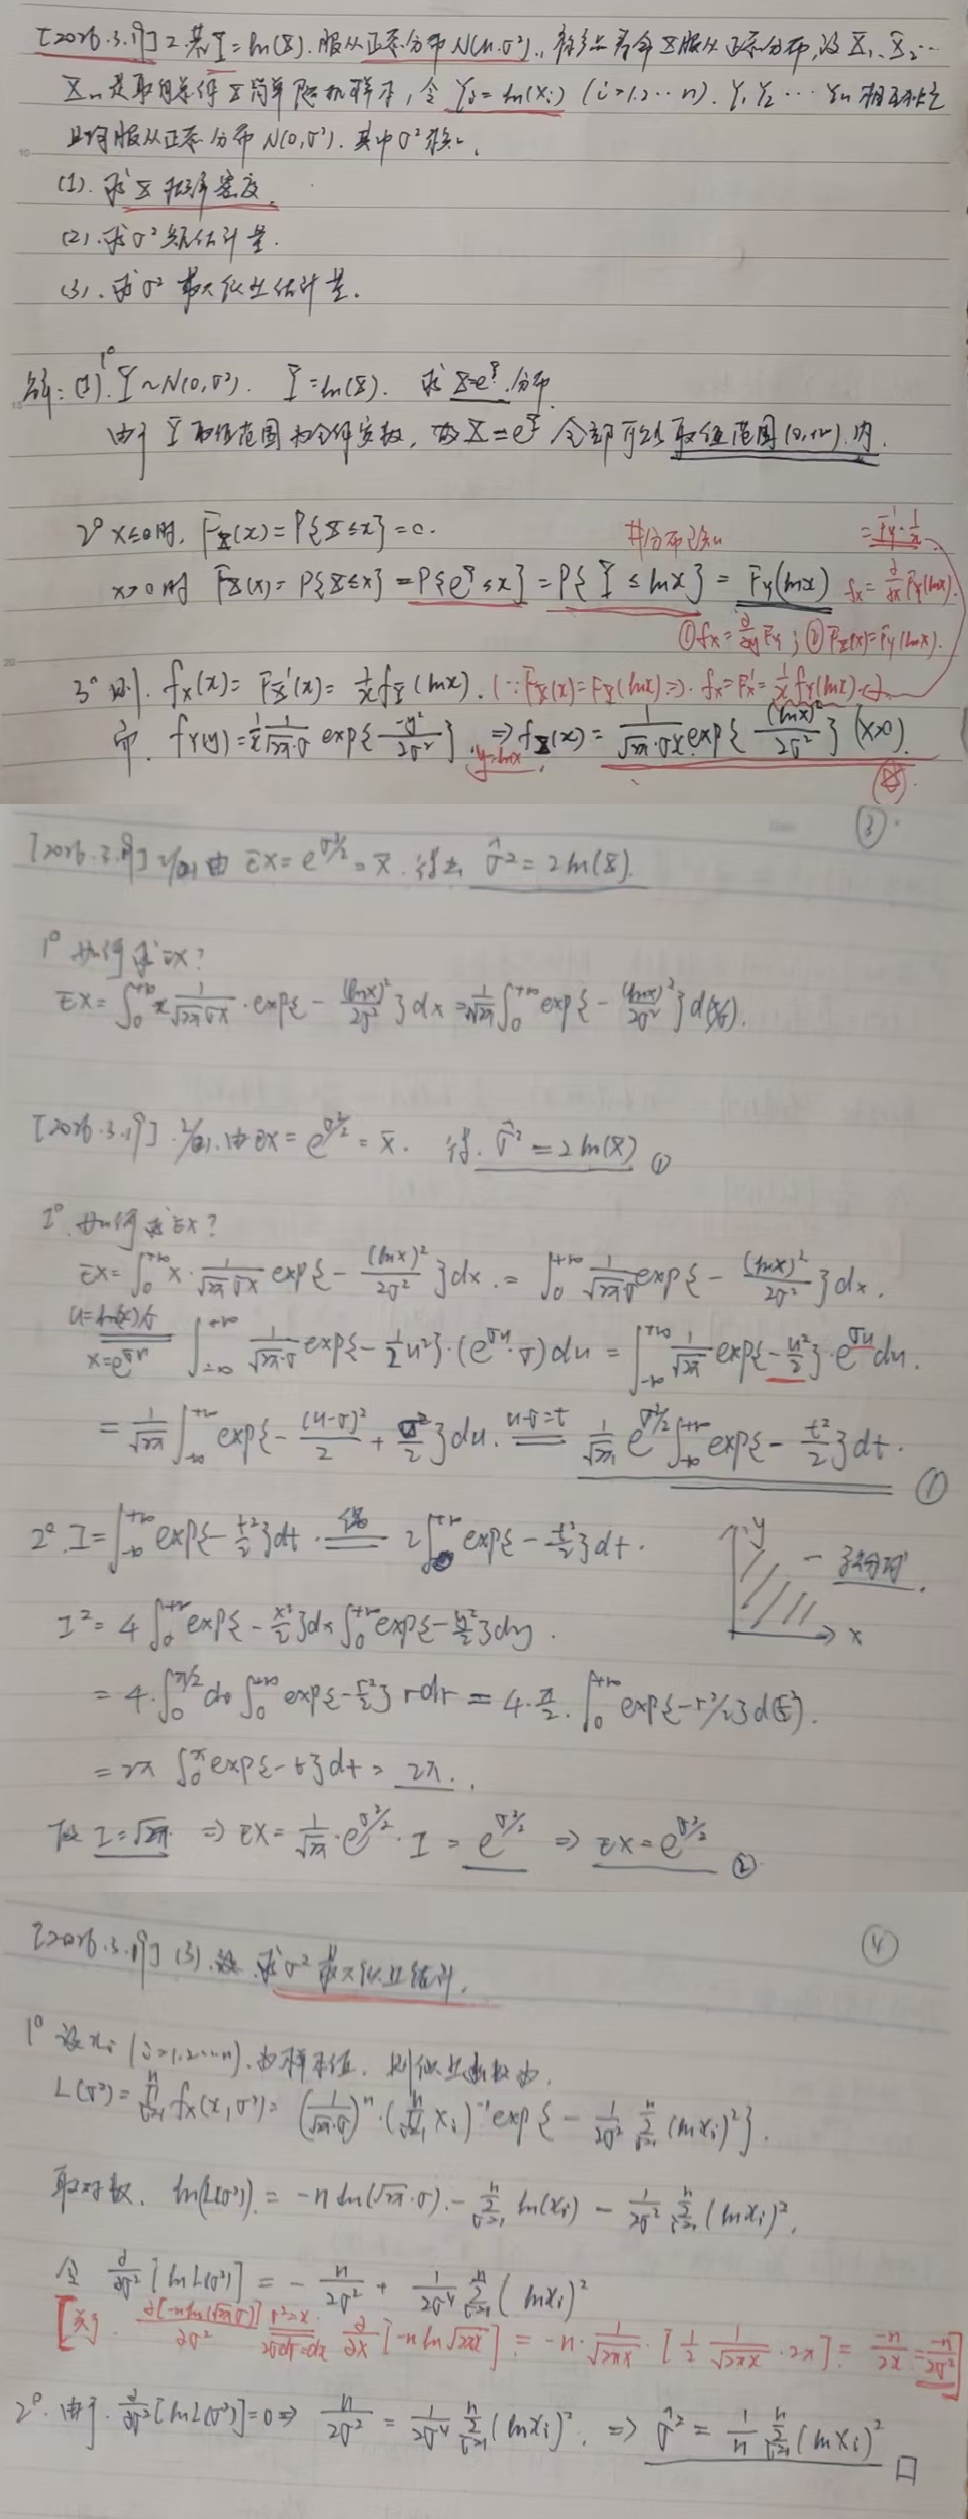 [2026.3.19] 2. 若Y=ln(X).服从正态分布N(μ.σ²).,称总体X服从正态分布,设X₁、X₂…
Xₙ是取自总体X简单随机样本,令Yᵢ=ln(Xᵢ) (i=1.2…n). Y₁ Y₂ … Yₙ相互独立
且均服从正态分布N(0,σ²). 其中σ²
(1). 求X概率密度.
(2). 求σ²矩估计量.
(3). 求σ²最大似然估计量.
解: (1). 1° Y~N(0,σ²). Y=ln(X). 求X=e^Y.分布
由于Y取值范围为全体实数, 故X=e^Y全部可能取值范围(0,+∞).内.
2° x≤0时. F_X(x)=P{X≤x}=0.
x>0时 F_X(x)=P{X≤x}=P{e^Y≤x}=P{Y≤lnx}=F_Y(lnx)
其分布已知
=F_Y'·1/x
f_X=∂/∂x F_Y(lnx).
①f_X=∂/∂y F_Y; ②F_X(x)=F_Y(lnx).
3° 则. f_X(x)=F_X'(x)=1/x f_Y(lnx). (∵F_X(x)=F_Y(lnx)⇒. f_X=F_X'=1/x f_Y(lnx)
即. f_Y(y)=1/x 1/(√2π·σ) exp{-y²/2σ²} y=lnx ⇒f_X(x)=1/(√2π·σx) exp{(lnx)²/2σ²} (x>0).
③
[2026.3.19] 2/(2) 由 EX=e^(σ²/2)=x̄. 得出 σ̂²=2ln(x̄).
1° 如何求EX?
EX=∫₀^(+∞) x 1/(√2πσx)·exp{-(lnx)²/2σ²}dx=1/√2π ∫₀^(+∞) exp{-(lnx)²/2σ²}d(x/σ).
[2026.3.19]. 2/(2). 由EX=e^(σ²/2)=x̄. 得. σ̂²=2ln(x̄) ①
1°. 如何求EX?
EX=∫₀^(+∞) x·1/(√2πσx) exp{-(lnx)²/2σ²}dx.=∫₀^(+∞) 1/(√2πσ) exp{-(lnx)²/2σ²}dx.
u=ln(x)/σ x=e^(σu) ∫_(-∞)^(+∞) 1/(√2π·σ) exp{-½u²}·(e^(σu)·σ)du=∫_(-∞)^(+∞) 1/√2π exp{-u²/2}·e^(σu)du.
=1/√2π ∫_(-∞)^(+∞) exp{-(u-σ)²/2+σ²/2}du. u-σ=t 1/√2π e^(σ²/2)∫_(-∞)^(+∞) exp{-t²/2}dt. ①
2°. I=∫_(-∞)^(+∞) exp{-t²/2}dt. 偶 2∫₀^(+∞) exp{-t²/2}dt.
y
x
I²=4∫₀^(+∞) exp{-x²/2}dx∫₀^(+∞) exp{-y²/2}dy.
=4·∫₀^(π/2) dθ∫₀^(+∞) exp{-r²/2}rdr=4·π/2·∫₀^(+∞) exp{-r²/2}d(r²/2).
=2π∫₀^(∞) exp{-t}dt=2π.
故 I=√2π ⇒EX=1/√2π·e^(σ²/2)·I=e^(σ²/2) ⇒EX=e^(σ²/2) ②
④
[2026.3.19] (3). 求σ²最大似然估计.
1° 设xᵢ (i=1,2…n).为样本值. 则似然函数为.
L(σ²)=∏ᵢ₌₁ⁿ f_X(x,σ²)=(1/(√2π·σ))ⁿ·(∏ᵢ₌₁ⁿ xᵢ)⁻¹exp{-1/2σ² Σᵢ₌₁ⁿ(lnxᵢ)²}.
取对数. ln(L(σ²)).=-nln(√2π·σ).-Σᵢ₌₁ⁿ ln(xᵢ)-1/2σ² Σᵢ₌₁ⁿ(lnxᵢ)².
令 ∂/∂σ²[lnL(σ²)]=-n/2σ²+1/2σ⁴ Σᵢ₌₁ⁿ(lnxᵢ)²
[关于. ∂[-nln(√2πσ)]/∂σ² σ²=x 2σdσ=dx ∂/∂x[-nln√2πx]=-n·1/√2πx·[½ 1/√2πx·2π]=-n/2x=-n/2σ²]
2°. 由于. ∂/∂σ²[lnL(σ²)]=0⇒ n/2σ²=1/2σ⁴ Σᵢ₌₁ⁿ(lnxᵢ)². ⇒ σ̂²=1/n Σᵢ₌₁ⁿ(lnXᵢ)² □